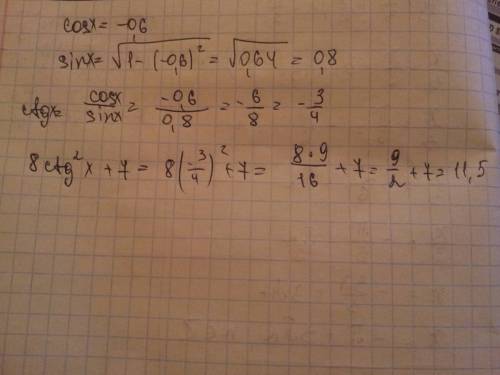 cosx = -0,6
sinx = √(1-(-0,6)²) = √0,64 = 0,8
ctgx = cosx/sinx = -0,6/0,8 = -6/8 = -3/4
8ctg²x + 7 = 8(-3/4)² + 7 = 8·9/16 + 7 = 9/2 + 7 = 11,5